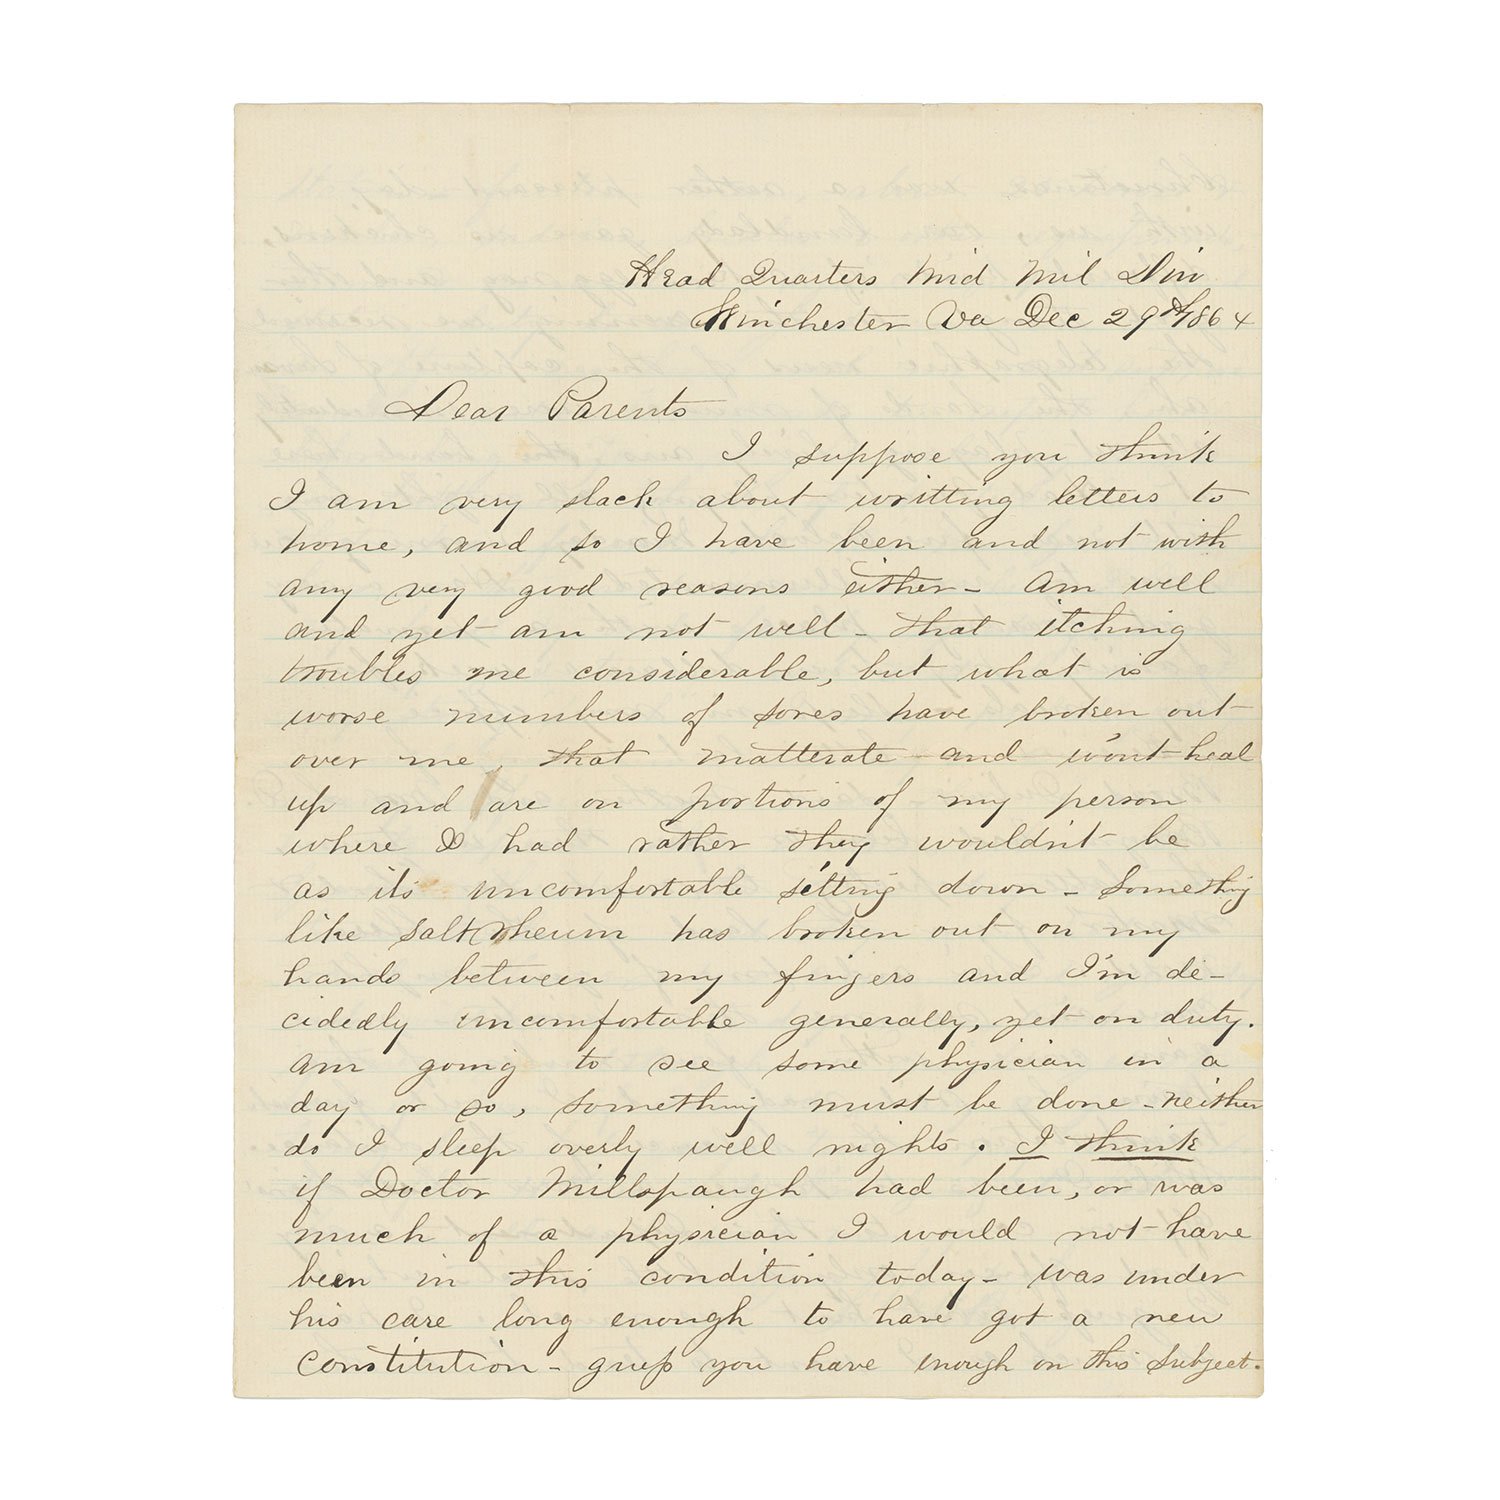 Head Quarters Mid Mil Div
Winchester Va Dec 29th 1864
Dear Parents
I suppose you think
I am very slack about writting letters to
home, and so I have been and not with
any very good reasons either - Am well
and yet am not well - that itching
troubles me considerable, but what is
worse numbers of sores have broken out
over me, that matterate and wont heal
up and are on portions of my person
where I had rather they wouldn't be
as its uncomfortable sitting down - Something
like salt rheum has broken out on my
hands between my fingers and I'm de-
cidedly uncomfortable generally, yet on duty.
Am going to see some physician in a
day or so, something must be done - neither
do I sleep overly well nights. I think
if Doctor Millspaugh had been, or was
much of a physician I would not have
been in this condition today - was under
his care long enough to have got a new
constitution - guess you have enough on this subject.